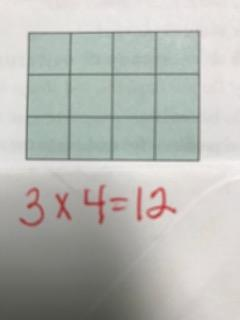 3 x 4 = 12